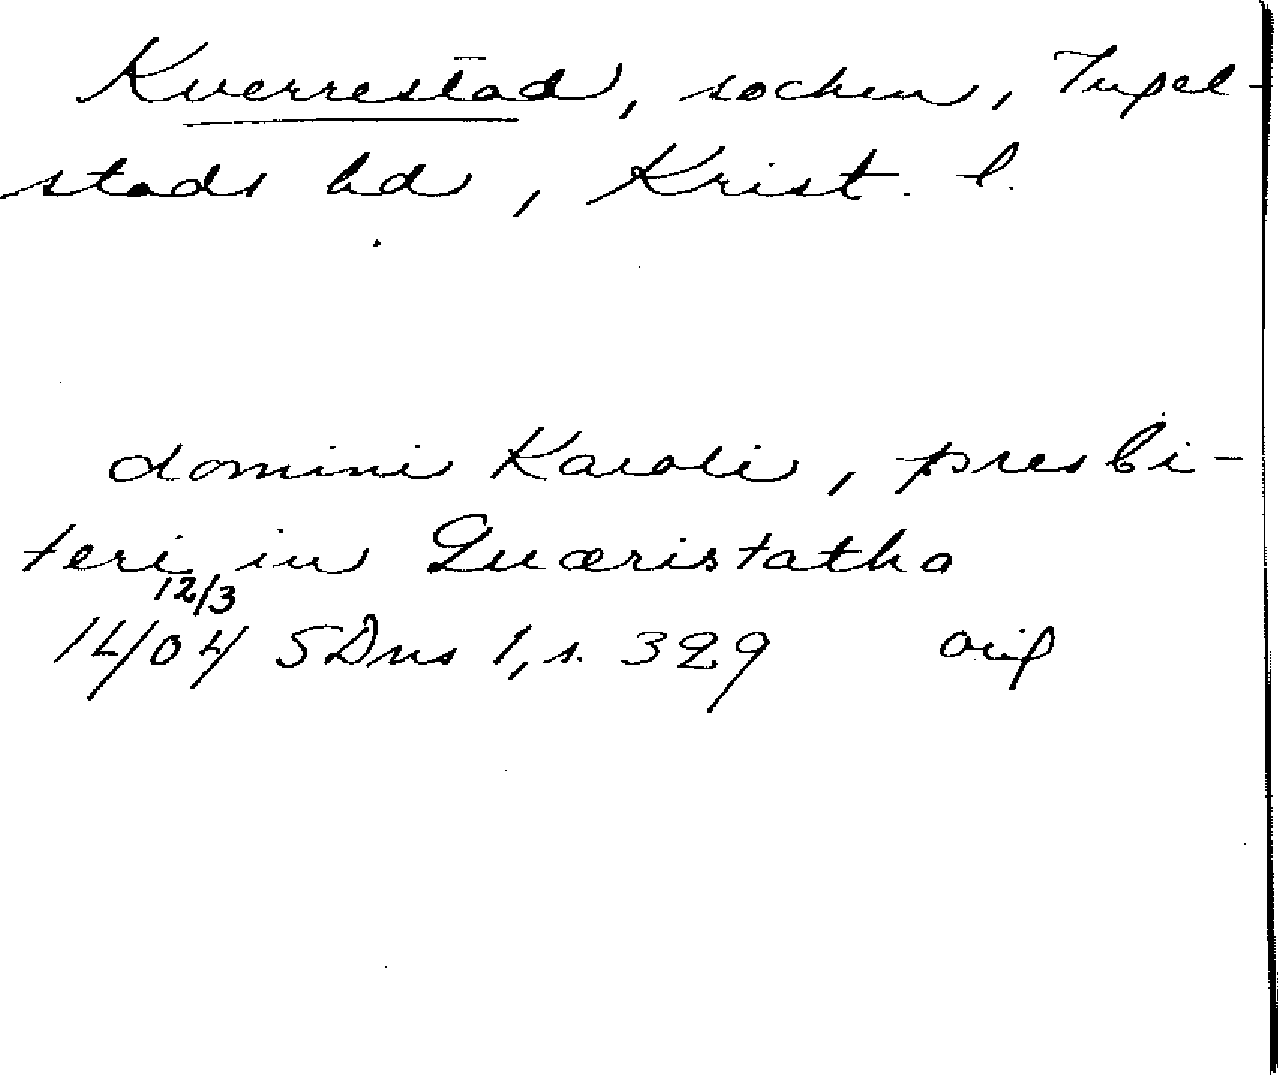 Kverrestad, socken, Ingel-
stads hd, Krist. l.
domini Karoli, presbi-
teri in Quæristatha
12/3
1404 SDns 1, s. 329 orig